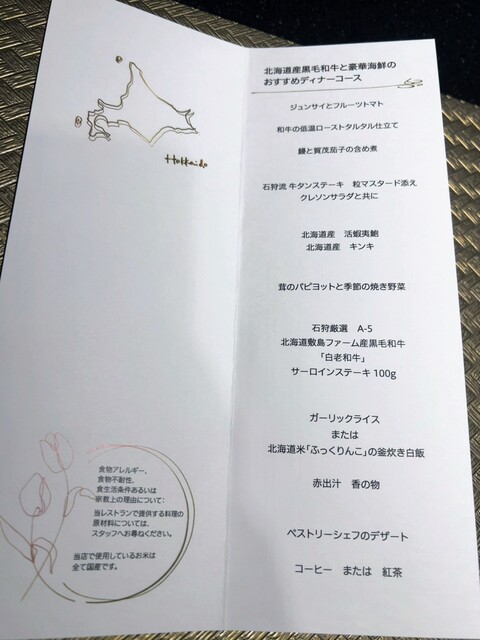 Hokkaido
食物アレルギー、
食物不耐性、
食生活条件あるいは
宗教上の理由について:
当レストランで提供する料理の
原材料については、
スタッフへお尋ねください。
当店で使用しているお米は
全て国産です。
北海道産黒毛和牛と豪華海鮮の
おすすめディナーコース
ジュンサイとフルーツトマト
和牛の低温ローストタルタル仕立て
鰻と賀茂茄子の含め煮
石狩流 牛タンステーキ 粒マスタード添え
クレソンサラダと共に
北海道産 活蝦夷鮑
北海道産 キンキ
茸のパピヨットと季節の焼き野菜
石狩厳選 A-5
北海道敷島ファーム産黒毛和牛
「白老和牛」
サーロインステーキ 100g
ガーリックライス
または
北海道米「ふっくりんこ」の釜炊き白飯
赤出汁 香の物
ペストリーシェフのデザート
コーヒー または 紅茶